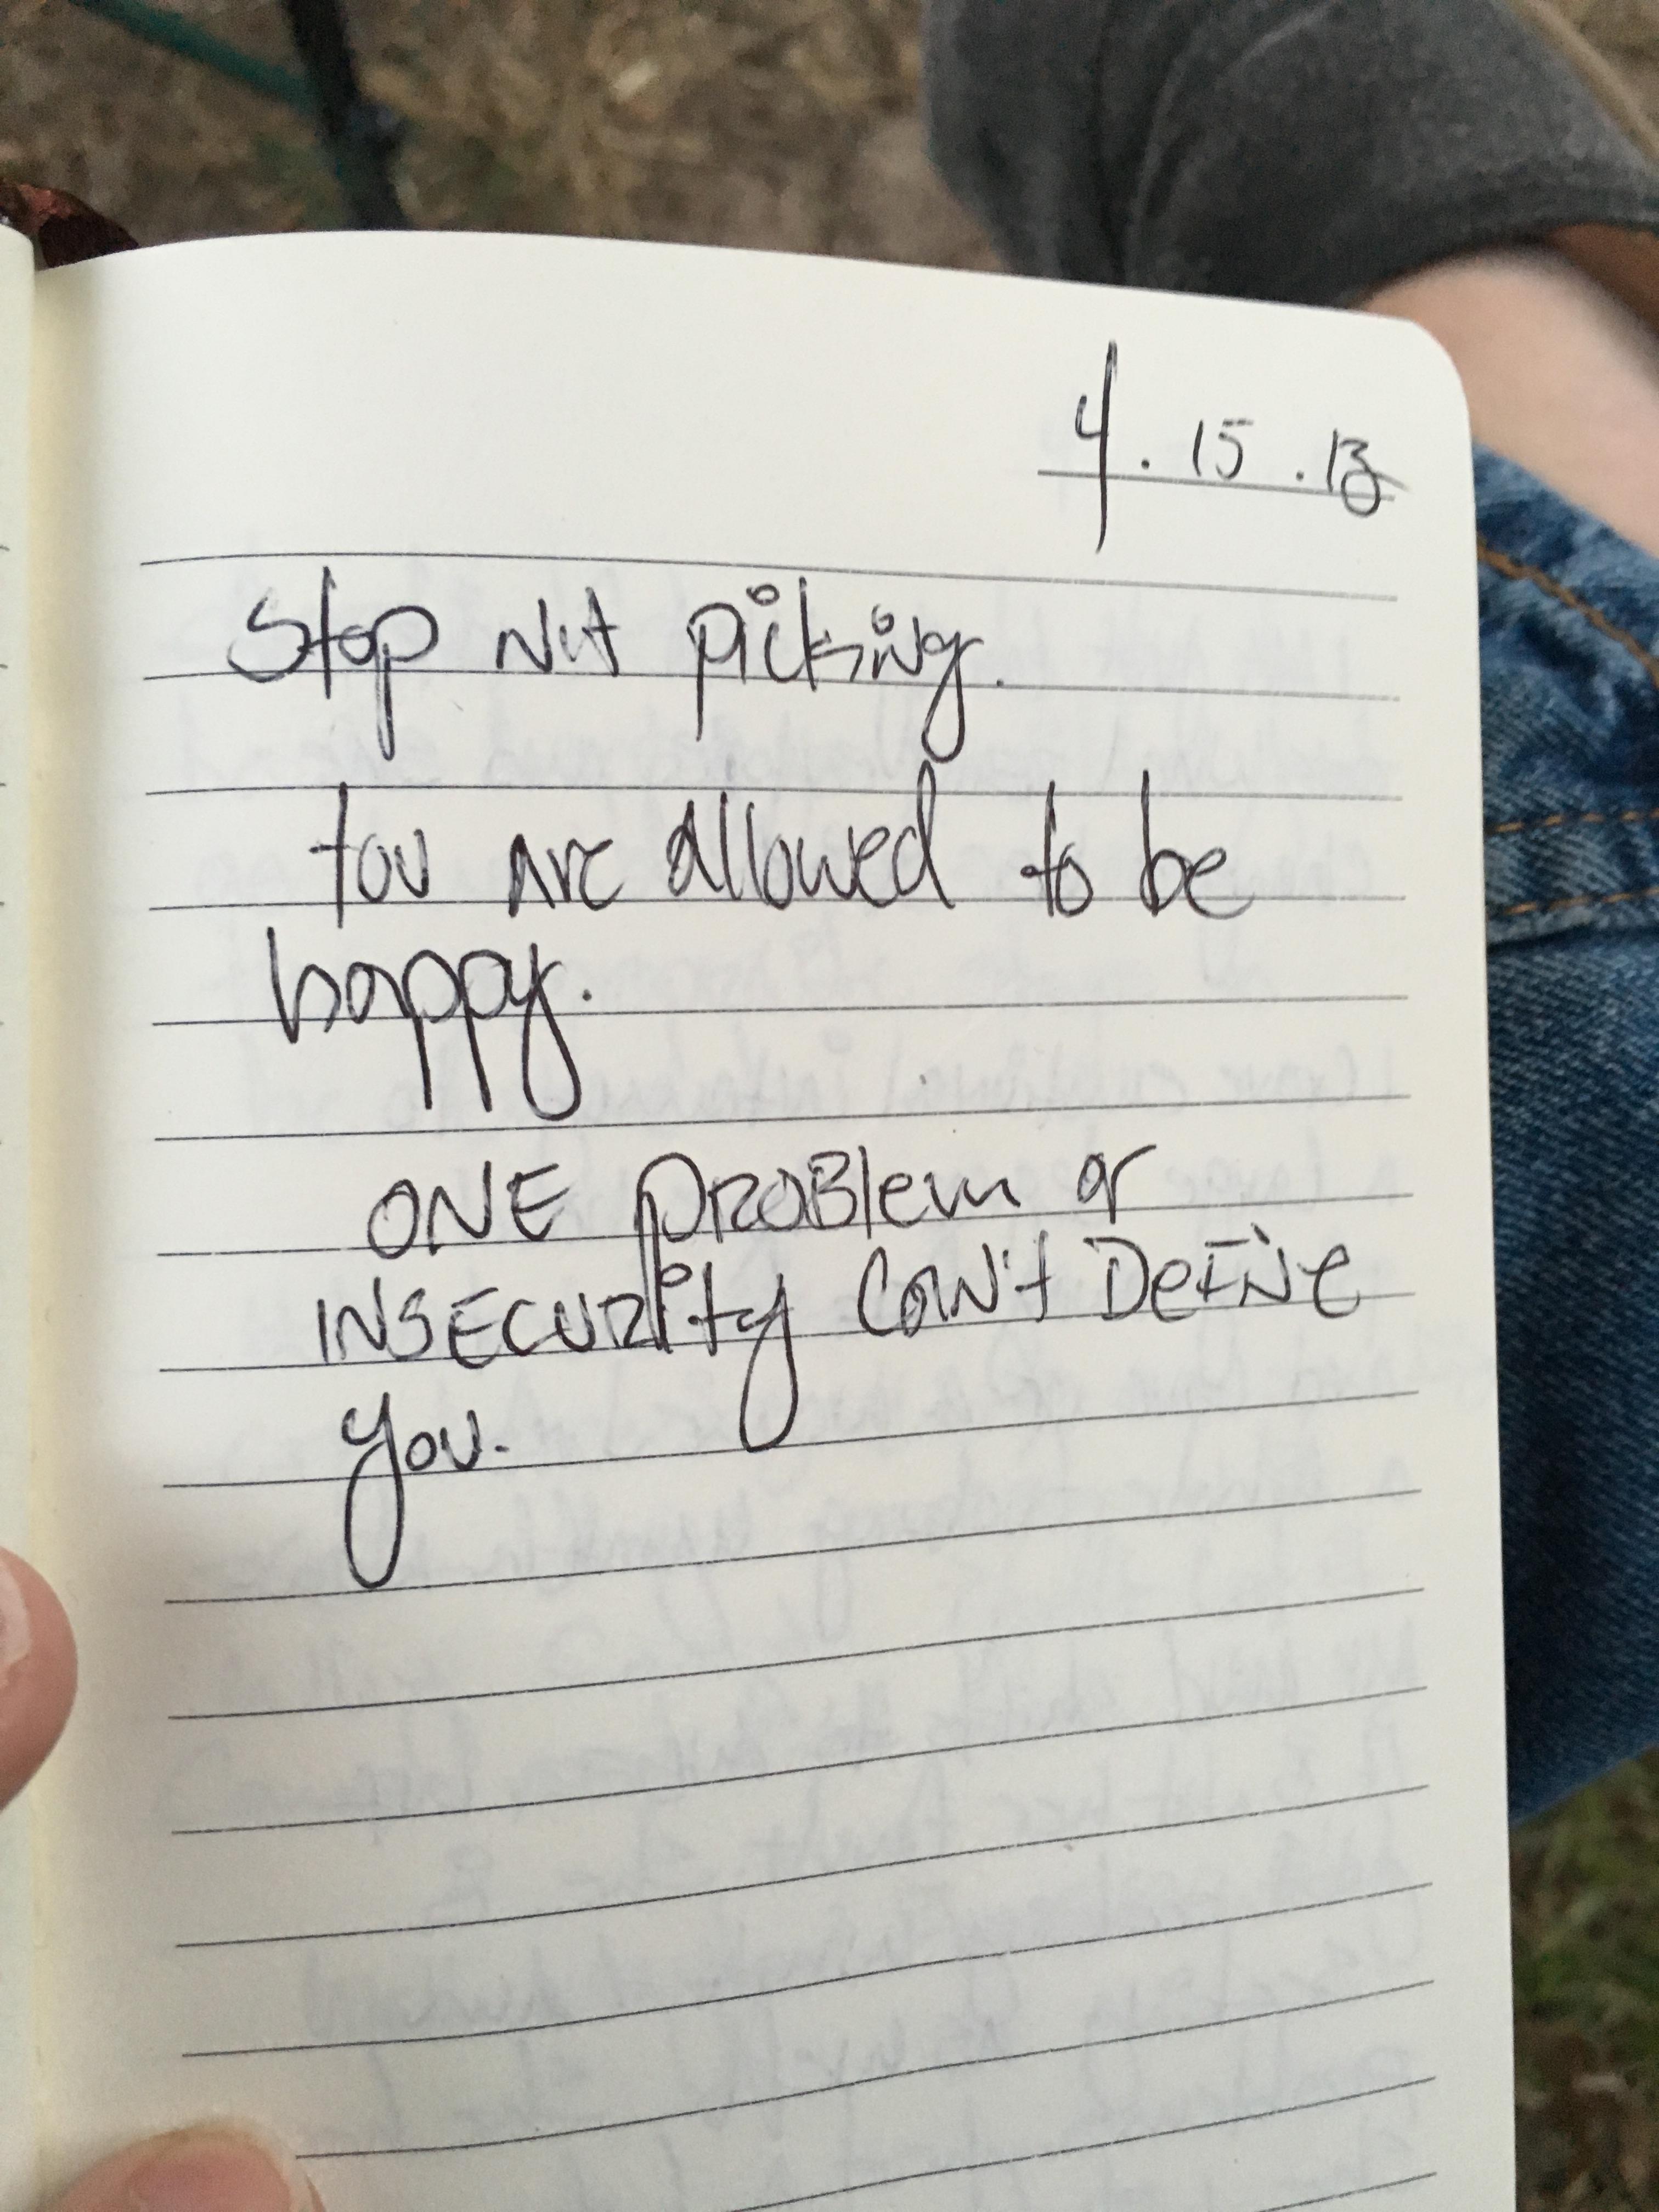 4.15.13
Stop Nit picking.
You are allowed to be
happy.
ONE PROBlem or
INSECURity Can't DeFiNe
you.